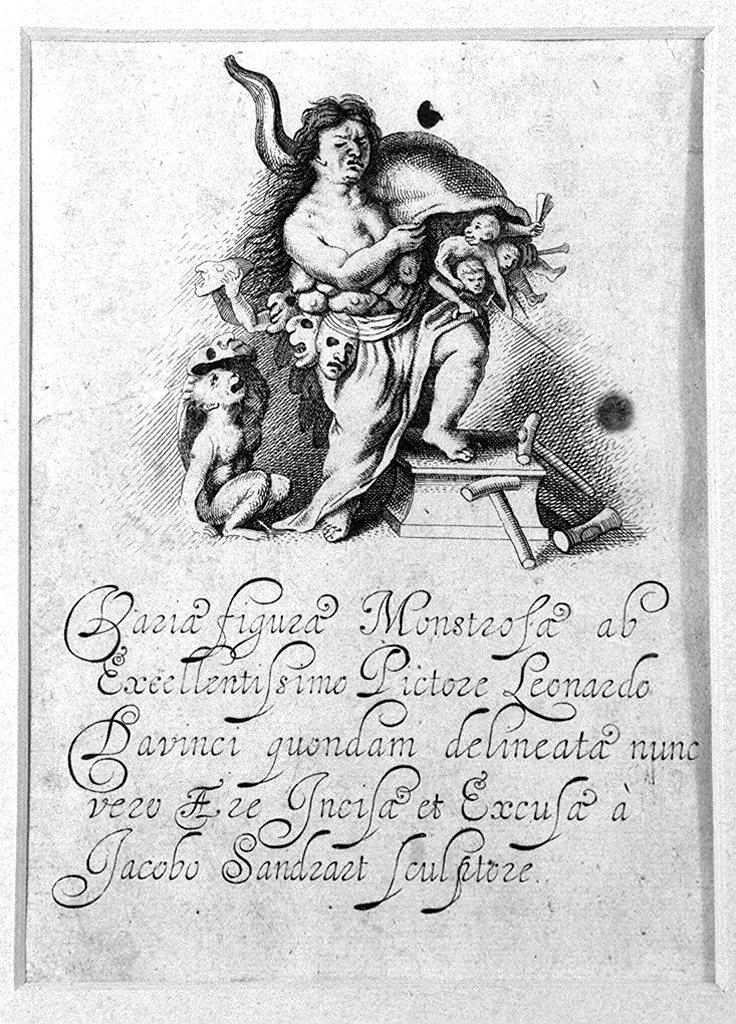 Varia figura Monstrosa ab
Excellentissimo Pictore Leonardo
Davinci quondam delineata nunc
vero Ære Incisa et Excusa à
Jacobo Sandrart sculptore.